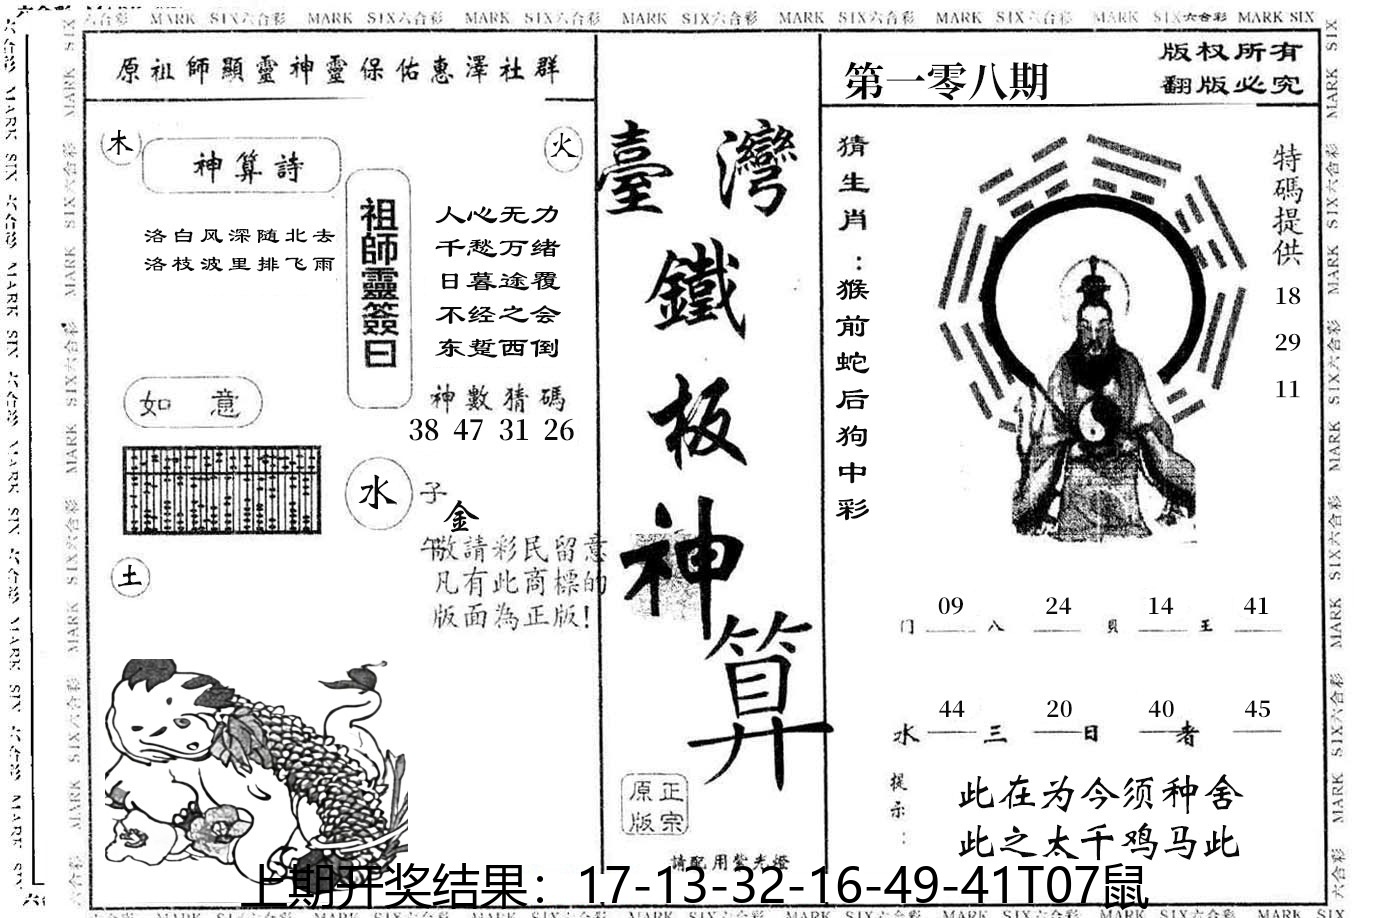 MARK SIX六合彩 MARK SIX六合彩 MARK SIX六合彩 MARK SIX六合彩 MARK SIX六合彩 MARK SIX六合彩 MARK SIX六合彩 MARK SIX
原祖師顯靈神靈保佑惠澤社群
木
火
神算詩
洛白风深随北去
洛枝波里排飞雨
祖師靈簽曰
人心无力
千愁万绪
日暮途覆
不经之会
东蹔西倒
如意
神數猜碼
38 47 31 26
水
子
金
午
敬請彩民留意
凡有此商標的
版面為正版!
土
臺灣
鐵
板
神
算
原正
版宗
請配用紫光燈
第一零八期
版权所有
翻版必究
猜生肖:猴前蛇后狗中彩
特碼提供
18
29
11
09 24 14 41
门 八 貝 王
44 20 40 45
水 三 日 者
提示:
此在为今须种舍
此之太千鸡马此
上期开奖结果：17-13-32-16-49-41T07鼠